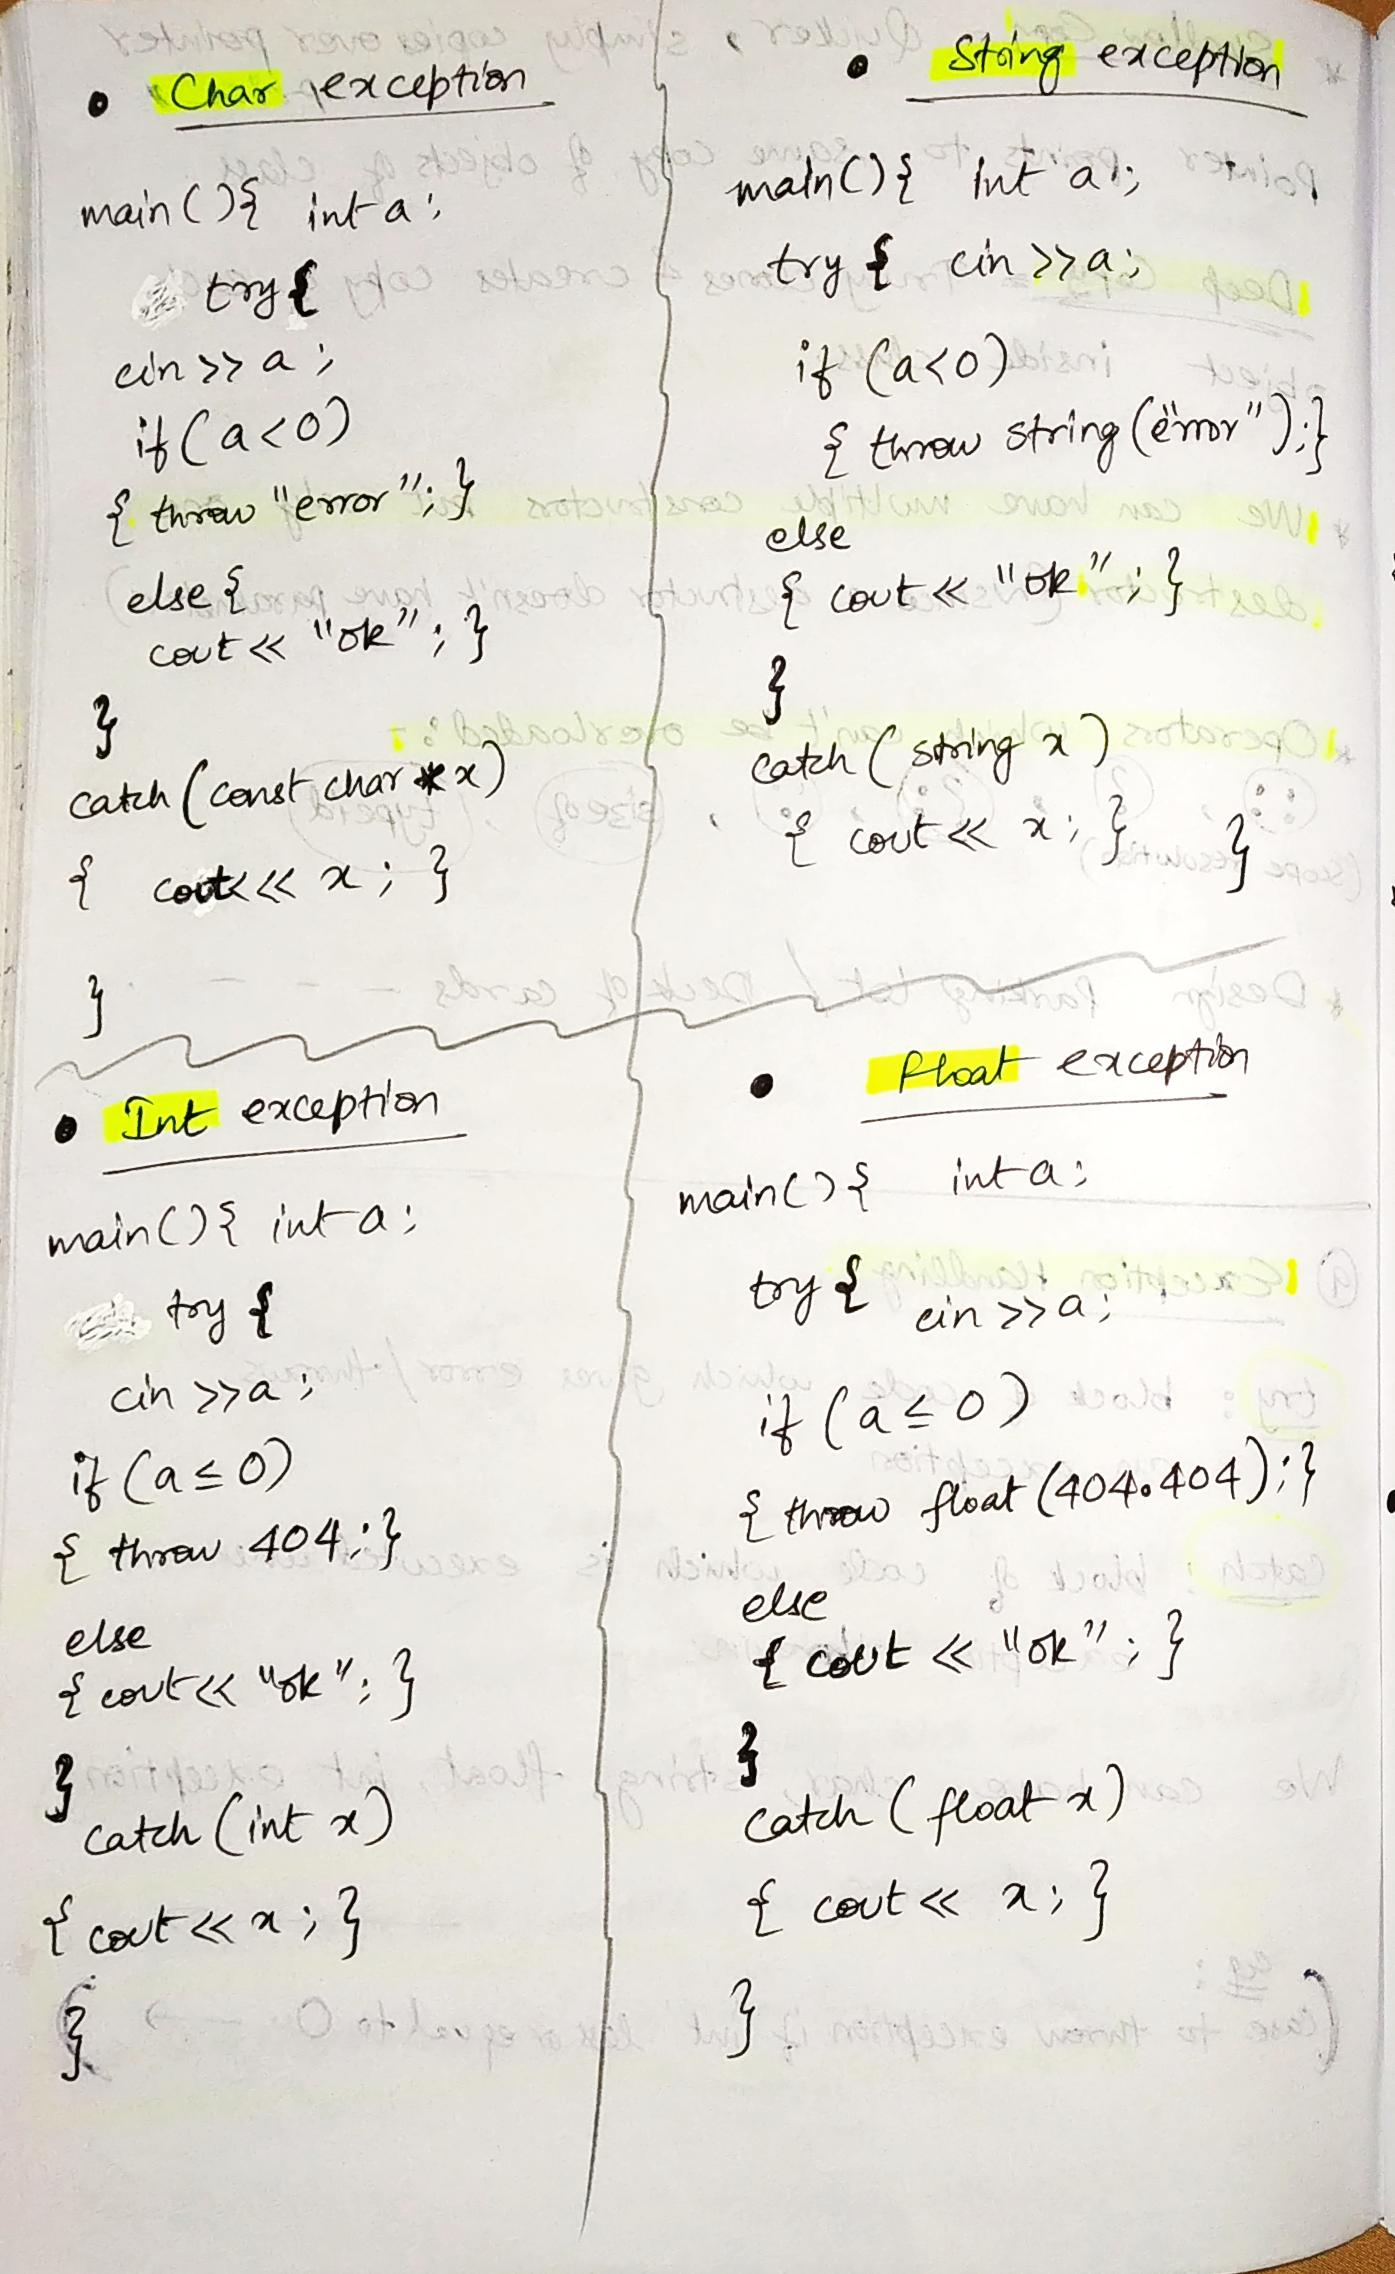 • Char exception
main(){ int a;
try{
cin >> a;
if(a<0)
{ throw "error"; }
else {
cout << "ok"; }
}
catch (const char *x)
{ cout << x; }
}
• String exception
main(){ int a;
try { cin >> a;
if (a<0)
{ throw string("error"); }
else
{ cout << "ok"; }
}
catch ( string x )
{ cout << x; } }
• Int exception
main(){ int a;
try {
cin >> a;
if (a ≤ 0)
{ throw 404; }
else
{ cout << "ok"; }
}
catch (int x)
{ cout << x; }
}
• float exception
main(){ int a;
try { cin >> a;
if (a ≤ 0)
{ throw float (404.404); }
else
{ cout << "ok"; }
}
catch ( float x )
{ cout << x; }
}